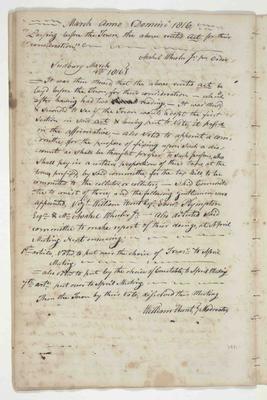 March Anno Domini 1816
Laying before the Town the above voted Act for their
consideration
Asahel Wheeler Jr. per Order
Sudbury March
1816
It was then moved that the above voted act be
laid before the Town for their consideration — which
after having had two readings — It was then
& Seconded to see if the Town would accept the first
Section in said act & being put to Vote it passed
in the affirmative — also Voted to appoint a com
mittee for the purpose of fixing upon such a dis
count as shall be thought proper to such persons who
Shall pay in a certain proportion of their Taxes at the
time prefixed by said committee for the tax bills to be
committed to the collector or collectors — Said Committee
to consist of three, and the following gentlemen was
appointed, Viz. William Hunt Esqr.
Esqr. & Mr. Asahel Wheeler Jr. — also Voted said
committee to make report of their doings at April
Meeting Next ensuing
article, Voted to put over the choice of to April
Meeting
also Voted to put by the choice of Constable to April Meeting
7th art. put over to April Meeting
Then the Town by their Vote, dissolved their Meeting
William Hunt Moderator